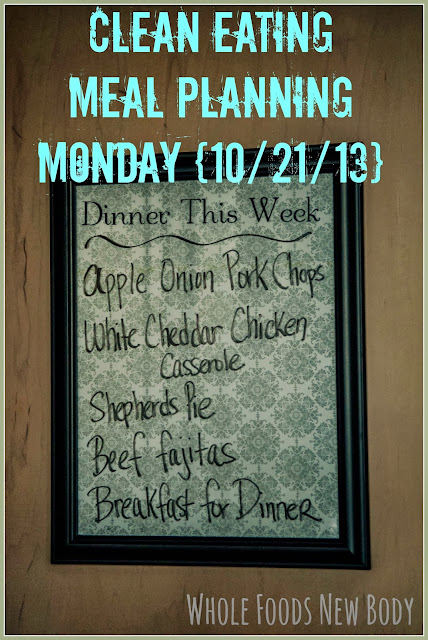 CLEAN EATING
MEAL PLANNING
MONDAY {10/21/13}
Dinner This Week
Apple Onion Pork Chops
White Cheddar Chicken
Casserole
Shepherds Pie
Beef fajitas
Breakfast for Dinner
WHOLE FOODS NEW BODY